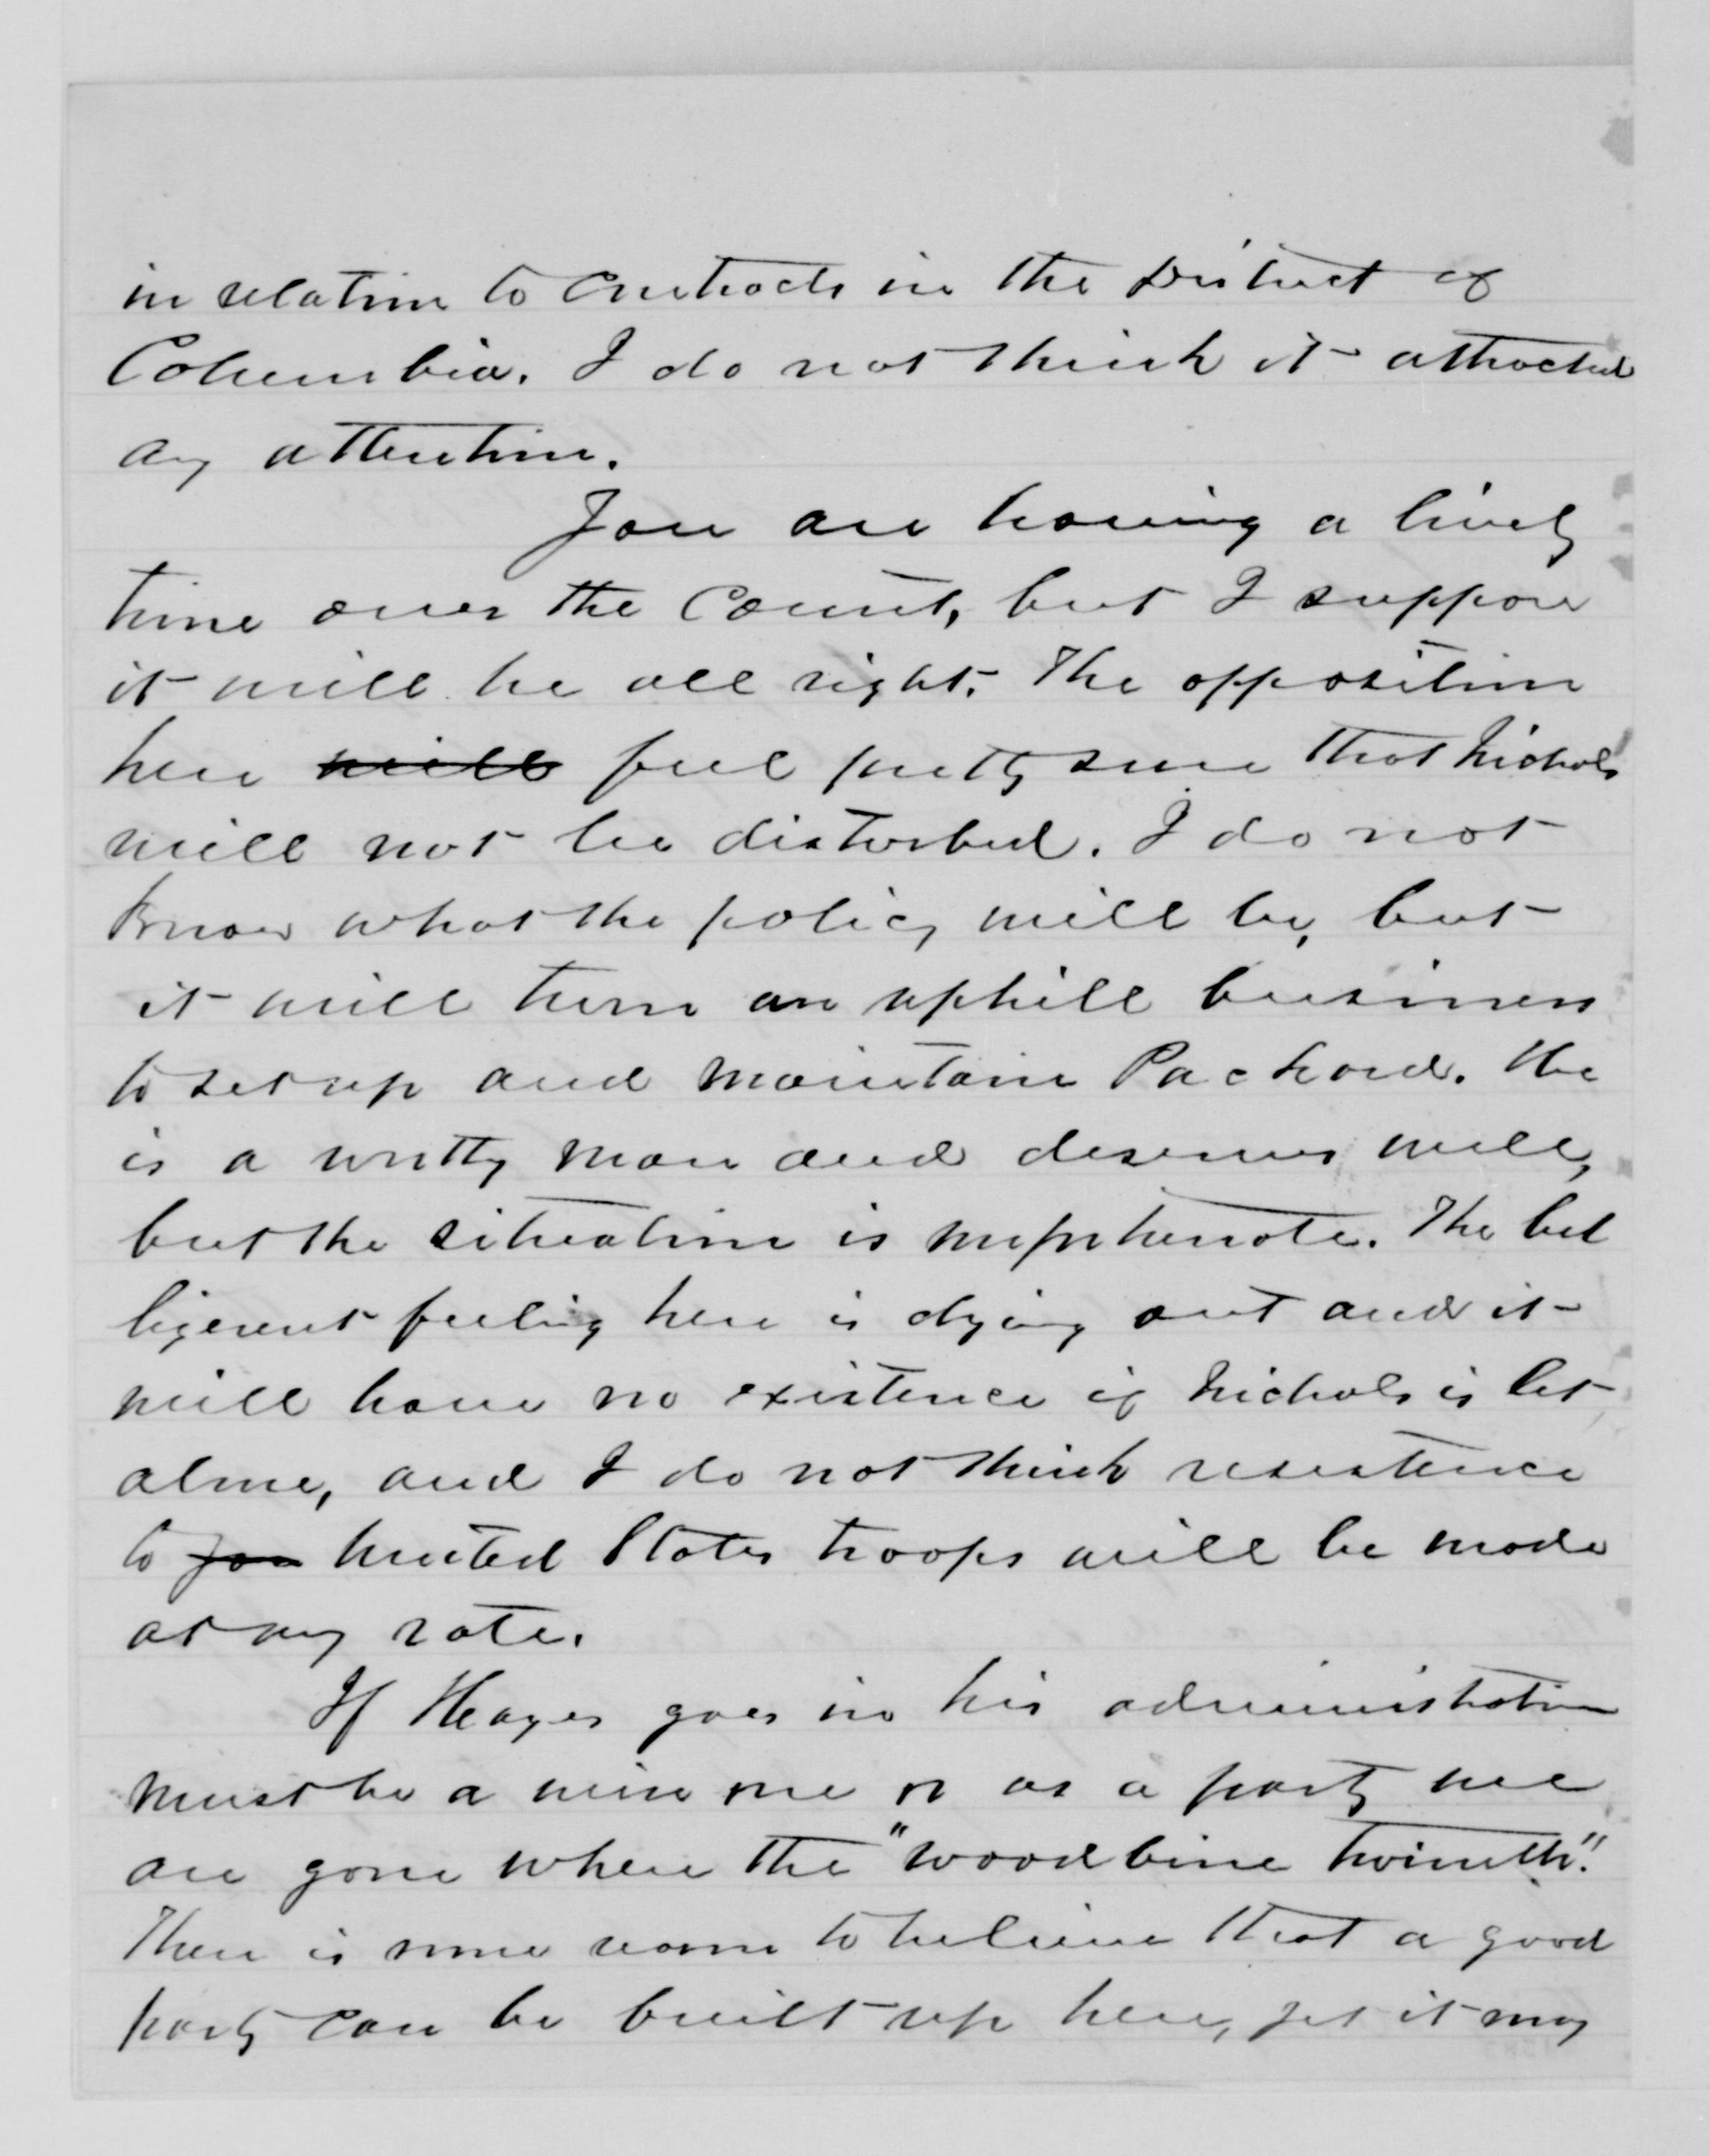 in relation to Contracts in the District of
Columbia. I do not think it attracted
any attention.
You are having a lively
time over the Count, but I suppose
it will be all right. The opposition
here will feel pretty sure that Nichols
will not be disturbed. I do not
know what the policy will be, but
it will turn an uphill business
to set up and maintain Packard. He
is a witty man and deserves well,
but the situation is unfortunate. The bel
ligerent feeling here is dying out and it
will have no existence if Nichols is let
alone, and I do not think resistence
to you United States troops will be made
at any rate.
If Heayes goes in his administration
must be a wise one or as a party we
are gone where the "woodbine twineth".
There is some room to believe that a good
party can be built up here, yet it may